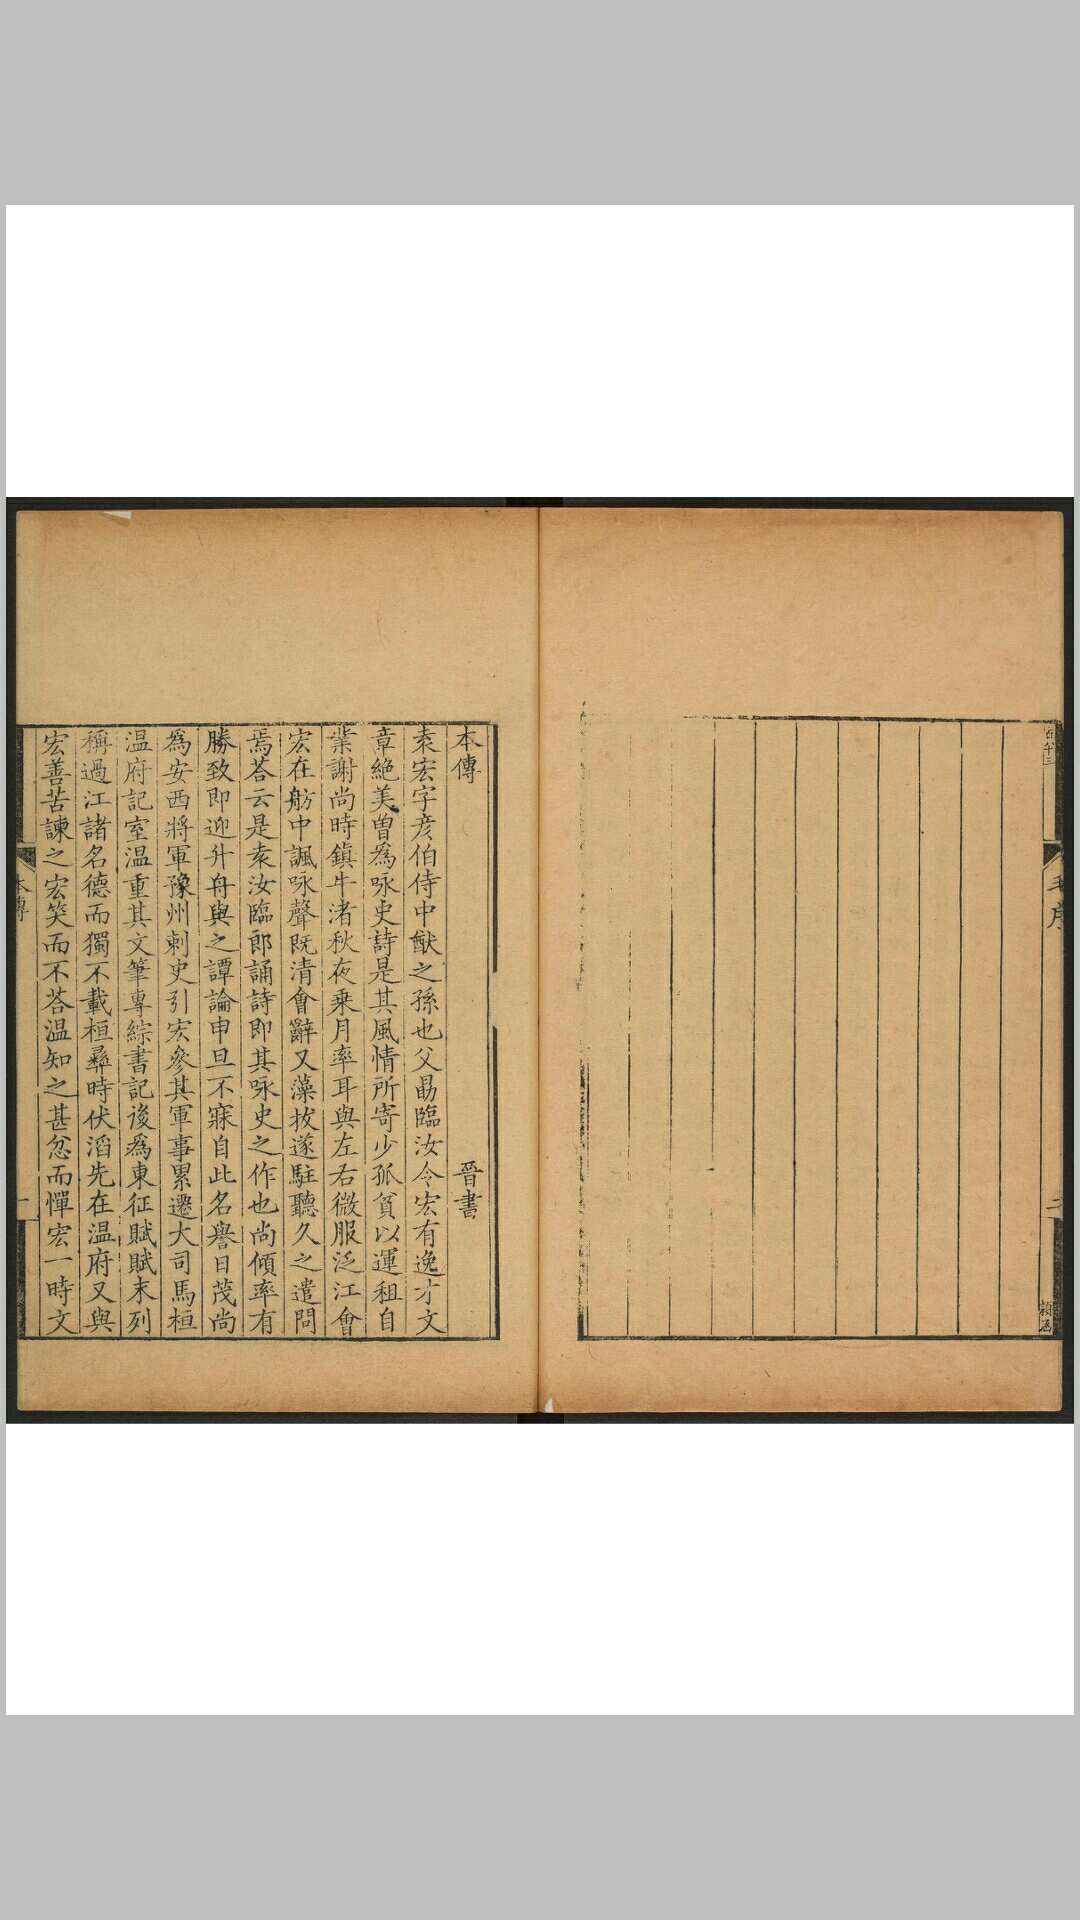 本傳 晉書
袁宏字彦伯侍中猷之孫也父勗臨汝令宏有逸才文
章絶美曽爲咏史詩是其風情所寄少孤貧以運租自
業謝尚時鎮牛渚秋夜乗月率耳與左右微服泛江會
宏在舫中諷咏聲既清會辭又藻拔遂駐聽久之遣問
焉荅云是袁汝臨郎誦詩即其咏史之作也尚傾率有
勝致即迎升舟與之譚論申旦不寐自此名譽日茂尚
爲安西將軍豫州刺史引宏參其軍事累遷大司馬桓
温府記室温重其文筆專綜書記後爲東征賦賦末列
稱過江諸名德而獨不載桓彞時伏滔先在温府又與
宏善苦諫之宏笑而不荅温知之甚忿而憚宏一時文
本傳
一